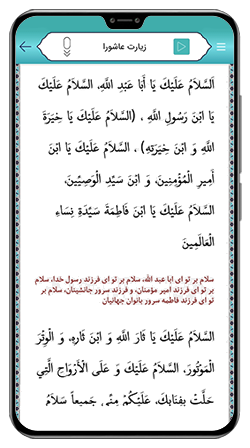 زیارت عاشورا
اَلسَّلامُ عَلَيْكَ يَا أَبَا عَبْدِ اللَّهِ، السَّلامُ عَلَيْكَ
يَا ابْنَ رَسُولِ اللَّهِ ، (السَّلامُ عَلَيْكَ يَا خِيَرَةَ
اللَّهِ وَ ابْنَ خِيَرَتِهِ) ، السَّلامُ عَلَيْكَ يَا ابْنَ
أَمِيرِ الْمُؤْمِنِينَ، وَ ابْنَ سَيِّدِ الْوَصِيِّينَ،
السَّلامُ عَلَيْكَ يَا ابْنَ فَاطِمَةَ سَيِّدَةِ نِسَاءِ
الْعَالَمِينَ
سلام بر تو ای ابا عبد الله، سلام بر تو ای فرزند رسول خدا، سلام
بر تو ای فرزند امیر مؤمنان، و فرزند سرور جانشینان، سلام بر
تو ای فرزند فاطمه سرور بانوان جهانیان
السَّلامُ عَلَيْكَ يَا ثَارَ اللَّهِ وَ ابْنَ ثَارِهِ، وَ الْوِتْرَ
الْمَوْتُورَ، السَّلامُ عَلَيْكَ وَ عَلَى الْأَرْوَاحِ الَّتِي
حَلَّتْ بِفِنَائِكَ، عَلَيْكُمْ مِنِّي جَمِيعاً سَلامُ